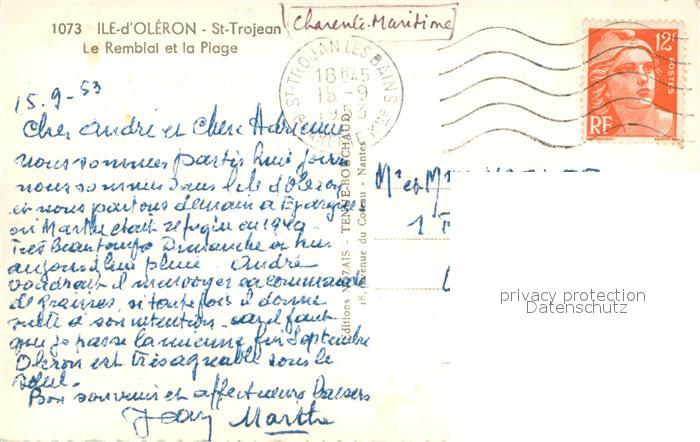 Charente-Maritime
1073 ILE-d'OLÉRON - St-Trojean
Le Remblai et la Plage
ST-TROJAN LES BAINS
18 H 45
15 - 9
12F
POSTES
RF
15.9-53
Cher André et Chère Adrienne
nous sommes partis huit jours
nous sommes dans l'ile d'Oléron
et nous partons demain à
où Marthe était réfugiée en 1940
Très beau temps Dimanche
aujourd'hui pluie. André
voudrait il m'envoyer sa commande
de graines, si toutefois il donne
suite à son intention. car il faut
que je passe la mienne fin Septembre
Oléron est très agréable sous le
soleil.
Bon souvenir et affectueux baisers
Jean Marthe
Editions - TENNE-BOUCHAUD
18, Avenue du Coteau - Nantes
Mr et M
1
privacy protection
Datenschutz